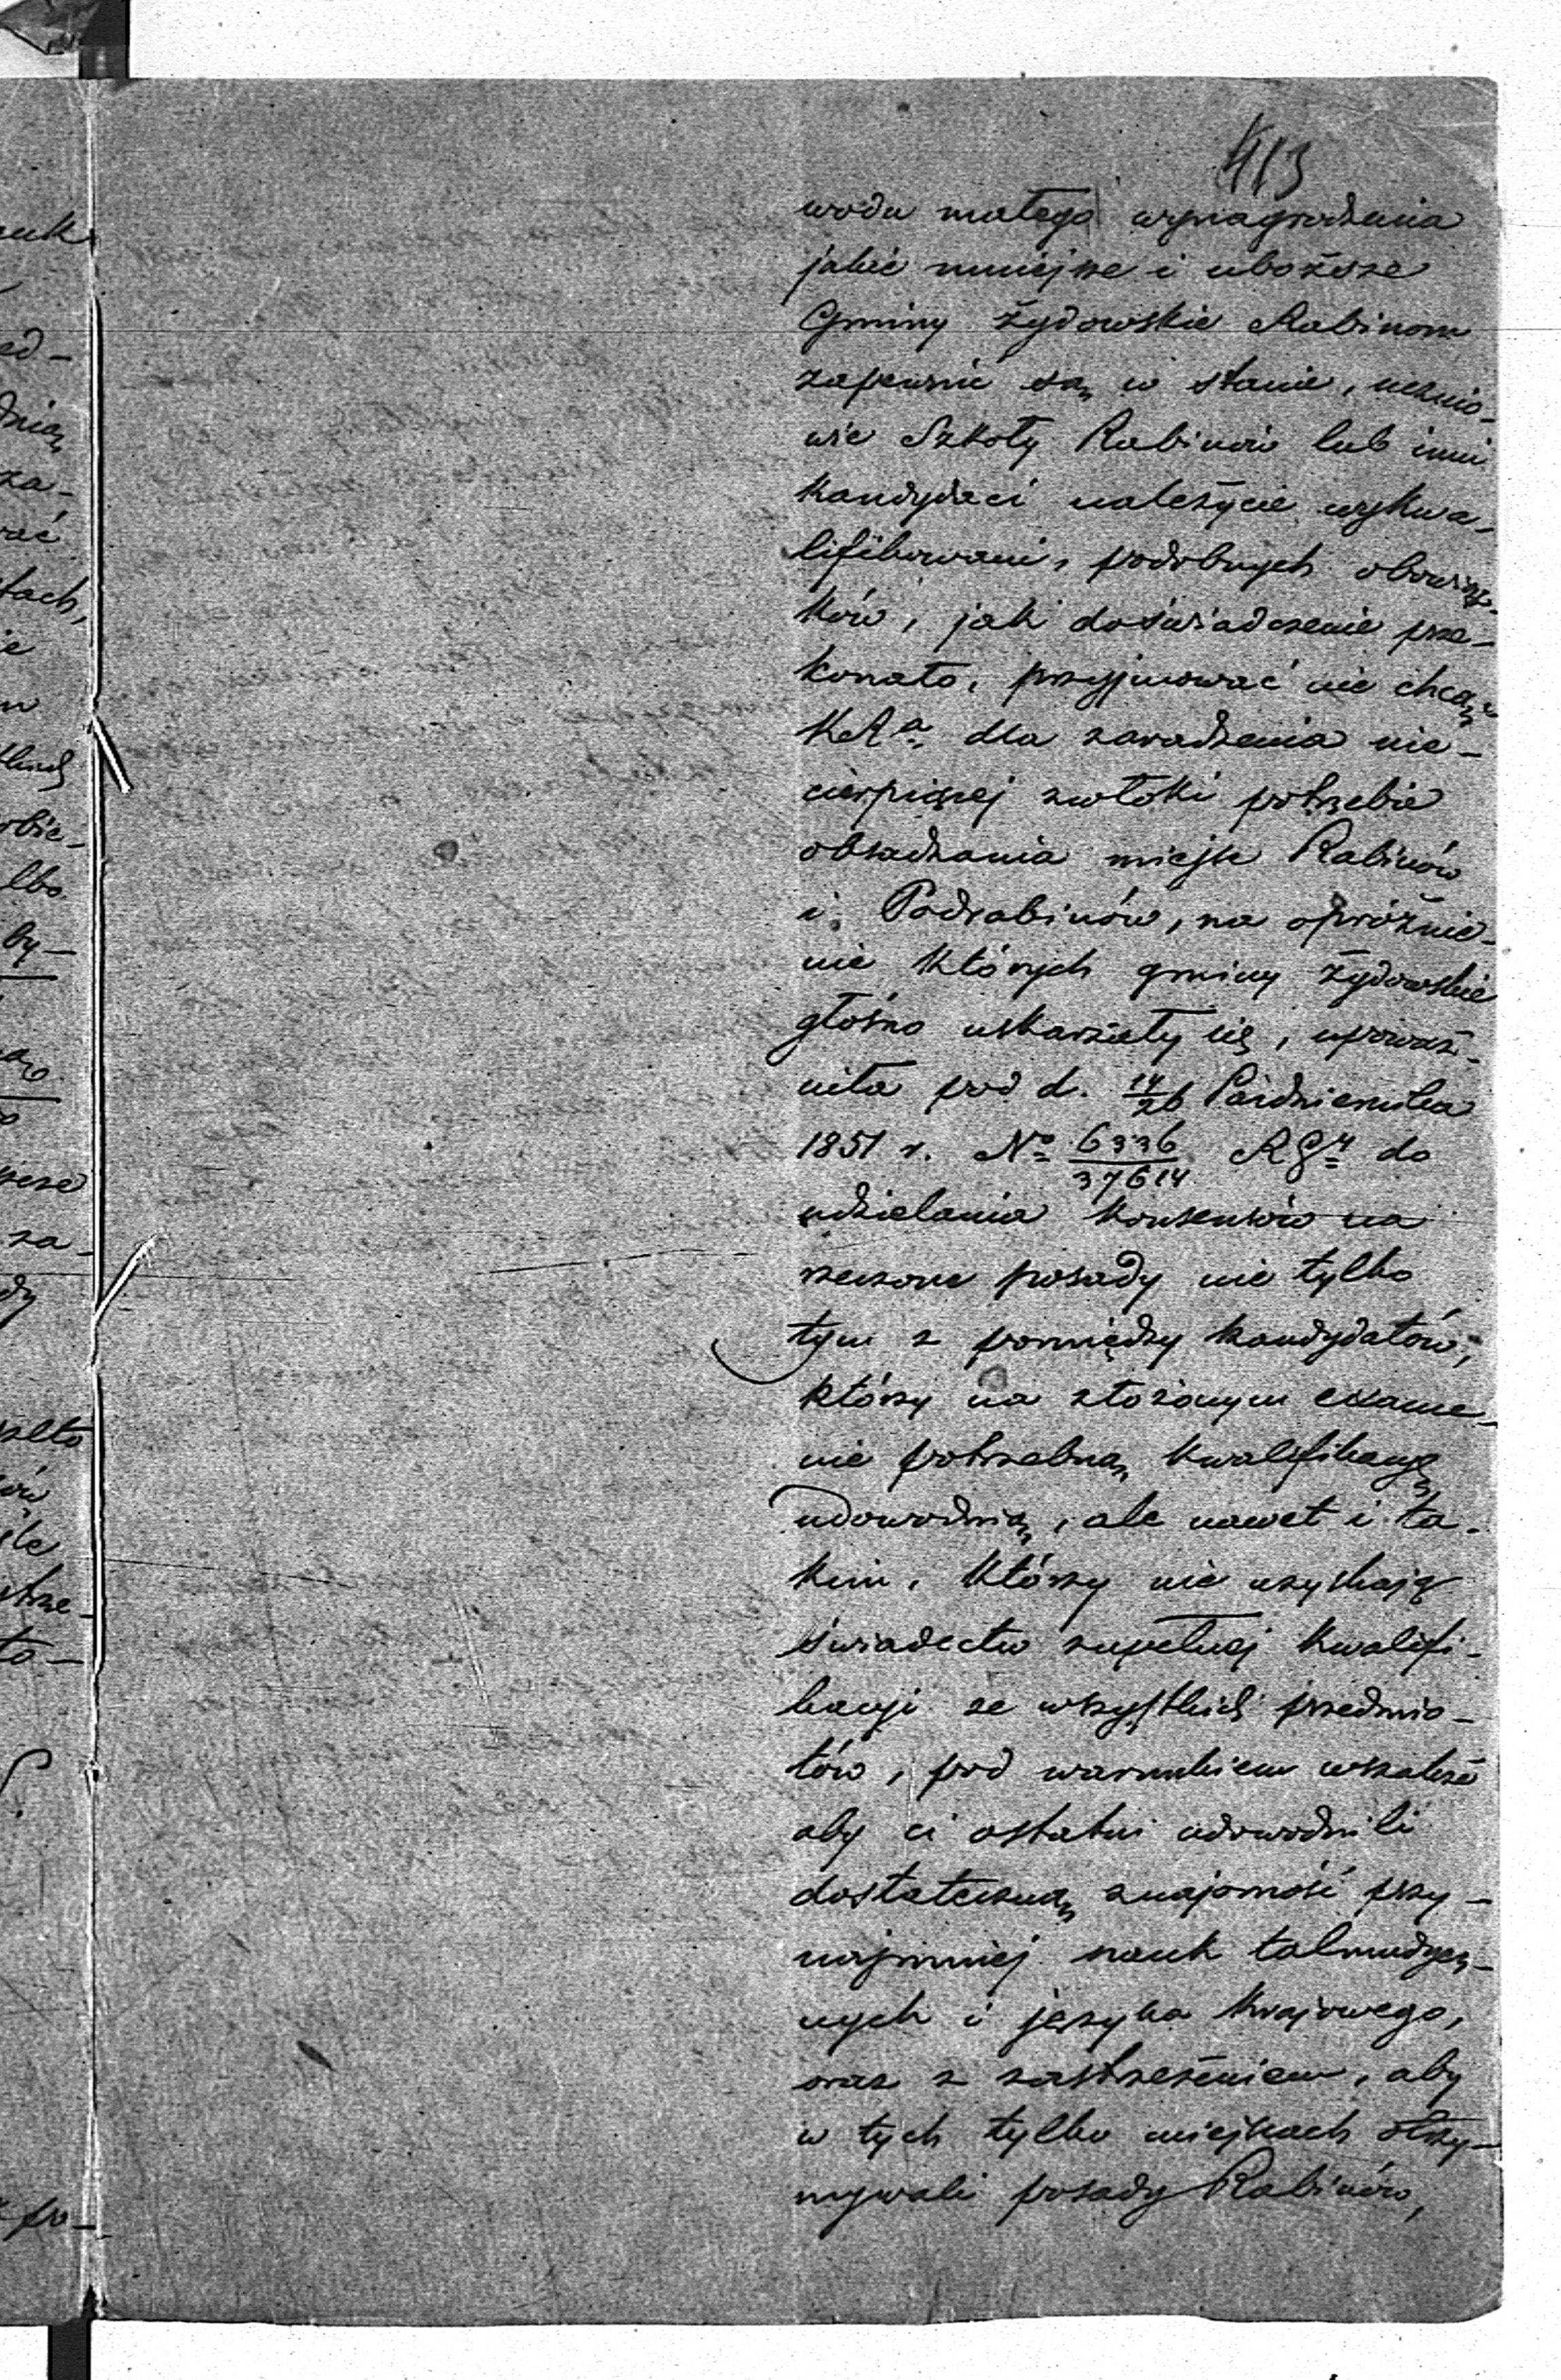 413
wodu małego wynagrodzenia
jakie mniejsze i uboższe
Gminy Żydowskie Rabinom
zapewnić są w stanie, ucznio-
wie Szkoły Rabinów lub inni
kandydaci należycie wykwa-
lifikowani, podobnych obowiąz-
ków, jak doświadczenie prze-
konało, przyjmować nie chcą,
dla zaradzenia nie-
cierpiącej zwłoki potrzebie
obsadzania miejsc Rabinów
i Podrabinów, na opróżnie-
nie których gminy żydowskie
głośno uskarżały się, upoważ-
niła pod d. 14/26 Października
1851 r. No 6336/37614 do
udzielania konsensów na
rzeczone posady nie tylko
tym z pomiędzy kandydatów,
którzy na złożonym exame-
nie potrzebną kwalifikacyę
udowodnią, ale nawet i ta-
kim, którzy nie uzyskają
świadectw zupełnej kwalifi-
kacyi ze wszystkich przedmio-
tów, pod warunkiem wszakże
aby ci ostatni udowodnili
dostateczną znajomość przy-
najmniej nauk talmudycz-
nych i języka krajowego,
oraz z zastrzeżeniem, aby
w tych tylko miejscach otrzy-
mywali posady Rabinów,